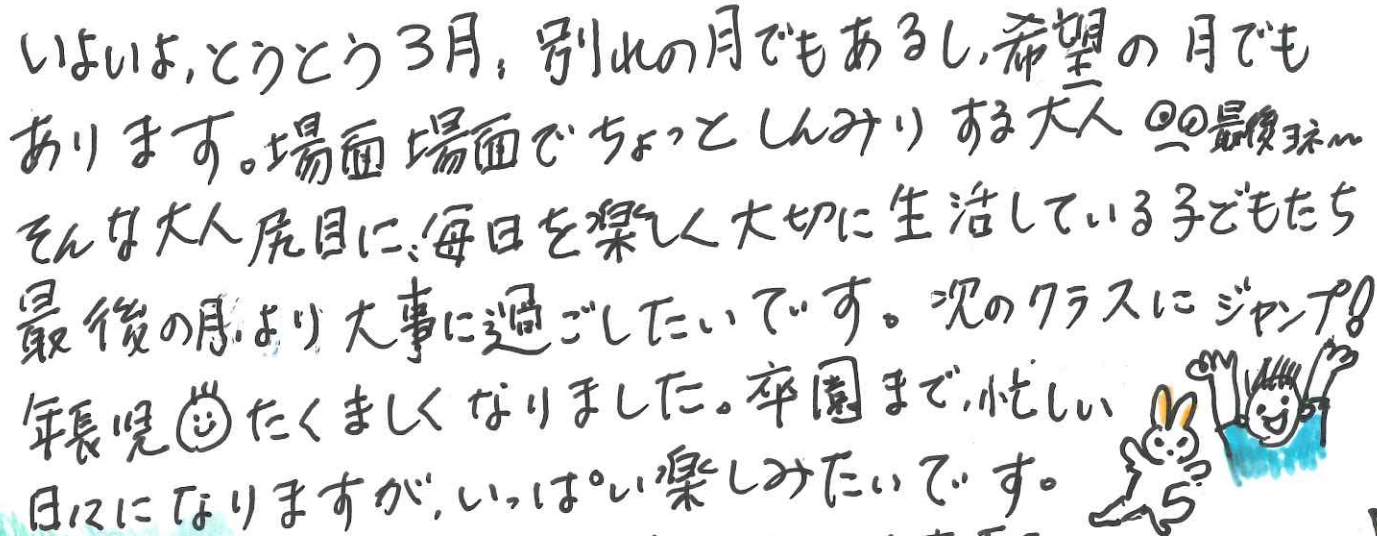 いよいよ,とうとう3月、別れの月でもあるし、希望の月でも
あります。場面場面でちょっとしんみりする大人 最後ヨネ〜
そんな大人尻目に、毎日を楽しく大切に生活している子どもたち
最後の月、より大事に過ごしたいです。次のクラスにジャンプ!
年長児たくましくなりました。卒園まで、忙しい
日々になりますが、いっぱい楽しみたいです。